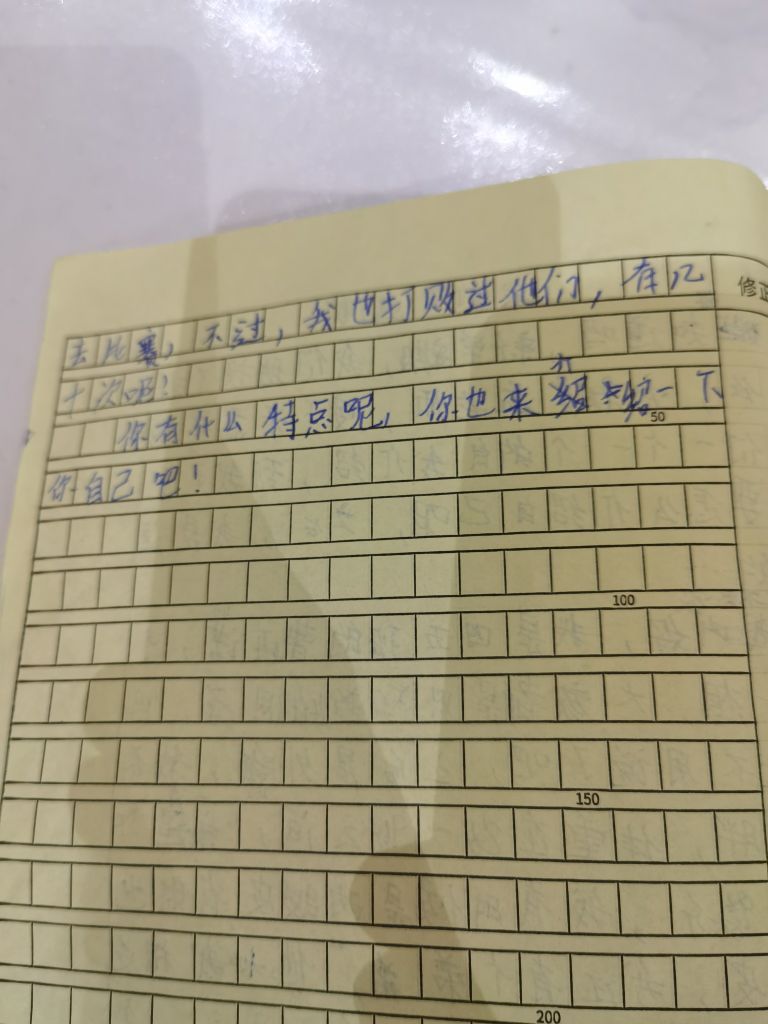 去比赛，不过，我也打败过他们，有几
十次呢！
你有什么特点呢，你也来介绍一下
你自己吧！
修正
50
100
150
200